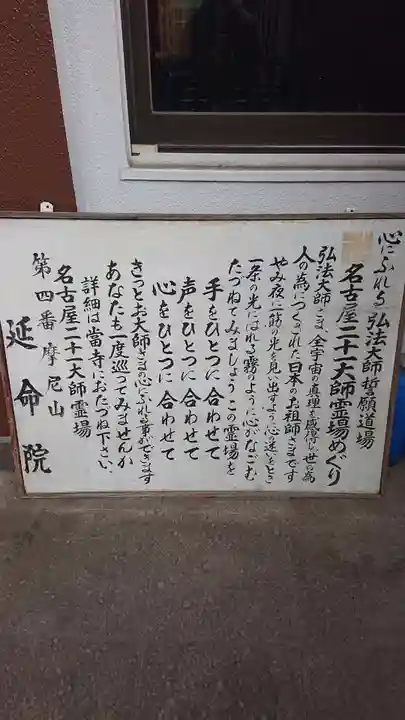 心にふれる 弘法大師誓願道場
名古屋二十一大師霊場めぐり
弘法大師さま、全宇宙の真理を感得し世の為
人の為につくされた日本のお祖師さまです
やみ夜に一筋の光を見い出すよう心迷うとき
一条の光にはれる霧のように心がなごむ
たづねてみましょうこの霊場を
手をひとつに合わせて
声をひとつに合わせて
心をひとつに合わせて
きっとお大師さまの心にふれる事ができます
あなたも一度巡ってみませんか
詳細は當寺におたづね下さい、
名古屋二十一大師霊場
第四番 摩尼山
延命院